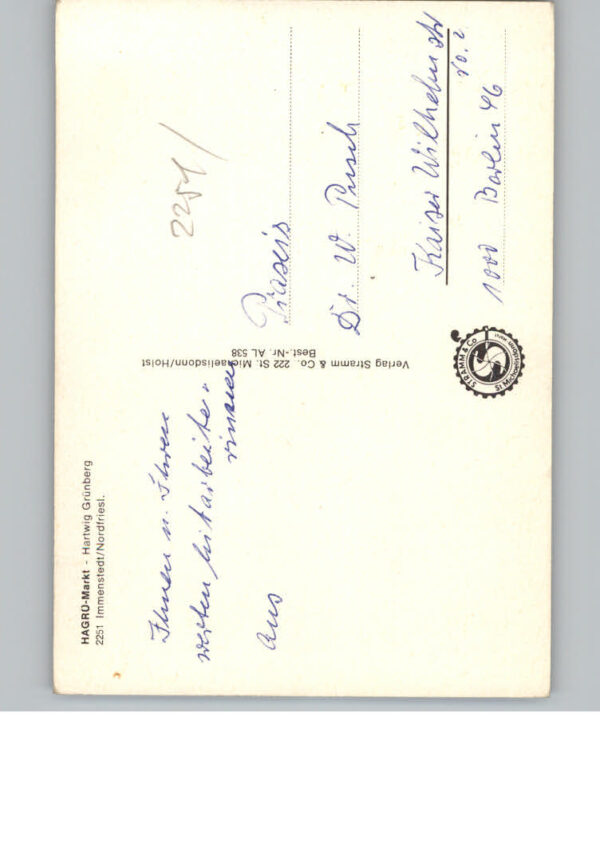 HAGRÜ-Markt - Hartwig Grünberg
2251 Immenstedt/Nordfriesl.
Ihnen u. Ihren
werten Mitarbeite-
rinnen
aus
Verlag Stramm & Co. 222 St. Michaelisdonn/Holst
Best.-Nr. AL 538
2251/
Praxis
Dr. W. Pusch
Kaiser Wilhelmstr
1000 Berlin 46
STRAMM & Co
St Michaelisdonn